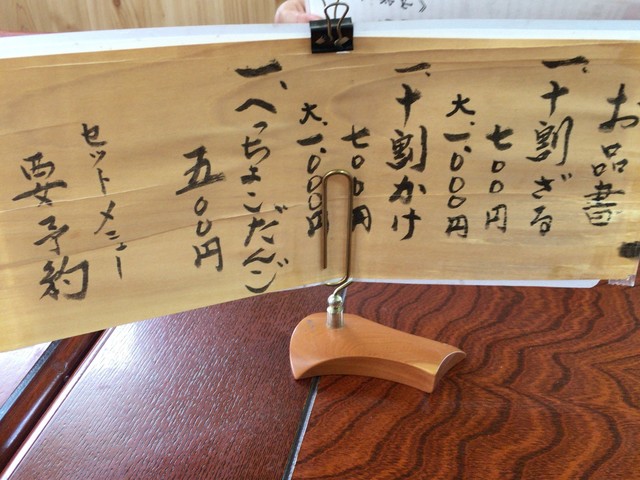 お品書
一、十割ざる
七〇〇円
大、一、〇〇〇円
一、十割かけ
七〇〇円
大、一、〇〇〇円
一、へっちょこだんご
五〇〇円
セットメニュー
要予約